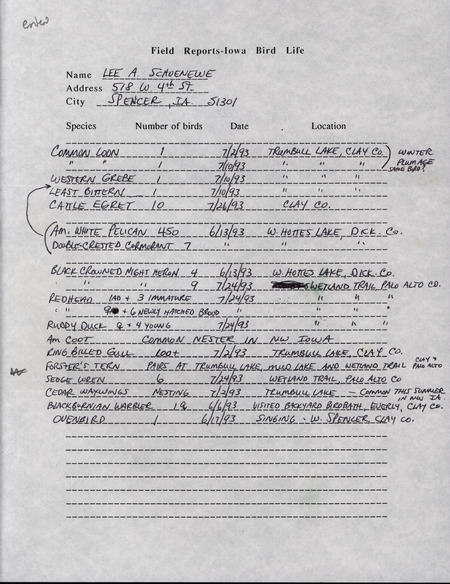 enter
Field Reports-Iowa Bird Life
Name LEE A. SCHOENEWE
Address 518 W. 4th ST.
City SPENCER, IA 51301
Species Number of birds Date Location
COMMON LOON 1 7/2/93 TRUMBULL LAKE, CLAY CO. WINTER PLUMAGE
" 1 7/10/93 " " " SAME BIRD?
WESTERN GREBE 1 7/10/93 " " "
LEAST BITTERN 1 7/10/93 " " "
CATTLE EGRET 10 7/26/93 CLAY CO.
AM. WHITE PELICAN 450 6/13/93 W. HOTTES LAKE, DICK. CO.
DOUBLE-CRESTED CORMORANT 7 " " "
BLACK CROWNED NIGHT HERON 4 6/13/93 W. HOTTES LAKE, DICK. CO.
" " 9 7/24/93 WETLAND TRAIL PALO ALTO CO.
REDHEAD + 3 IMMATURE 7/24/93 " " "
" ♀ + 6 NEWLY HATCHED BROOD " " "
RUDDY DUCK ♀ + 4 YOUNG 7/24/93 " " "
AM COOT COMMON NESTER IN NW IOWA
RING BILLED GULL 100+ 7/2/93 TRUMBULL LAKE, CLAY CO.
FORSTER'S TERN PAIRS AT TRUMBULL LAKE, MUD LAKE AND WETLAND TRAIL CLAY & PALO ALTO
SEDGE WREN 6 7/24/93 WETLAND TRAIL, PALO ALTO CO
CEDAR WAXWINGS NESTING 7/2/93 TRUMBULL LAKE - COMMON THIS SUMMER IN NW IA.
BLACKBURNIAN WARBLER 1♀ 6/6/93 VISITED BACKYARD BIRDBATH, EVERLY, CLAY CO.
OVENBIRD 1 6/17/93 SINGING - W. SPENCER, CLAY CO.